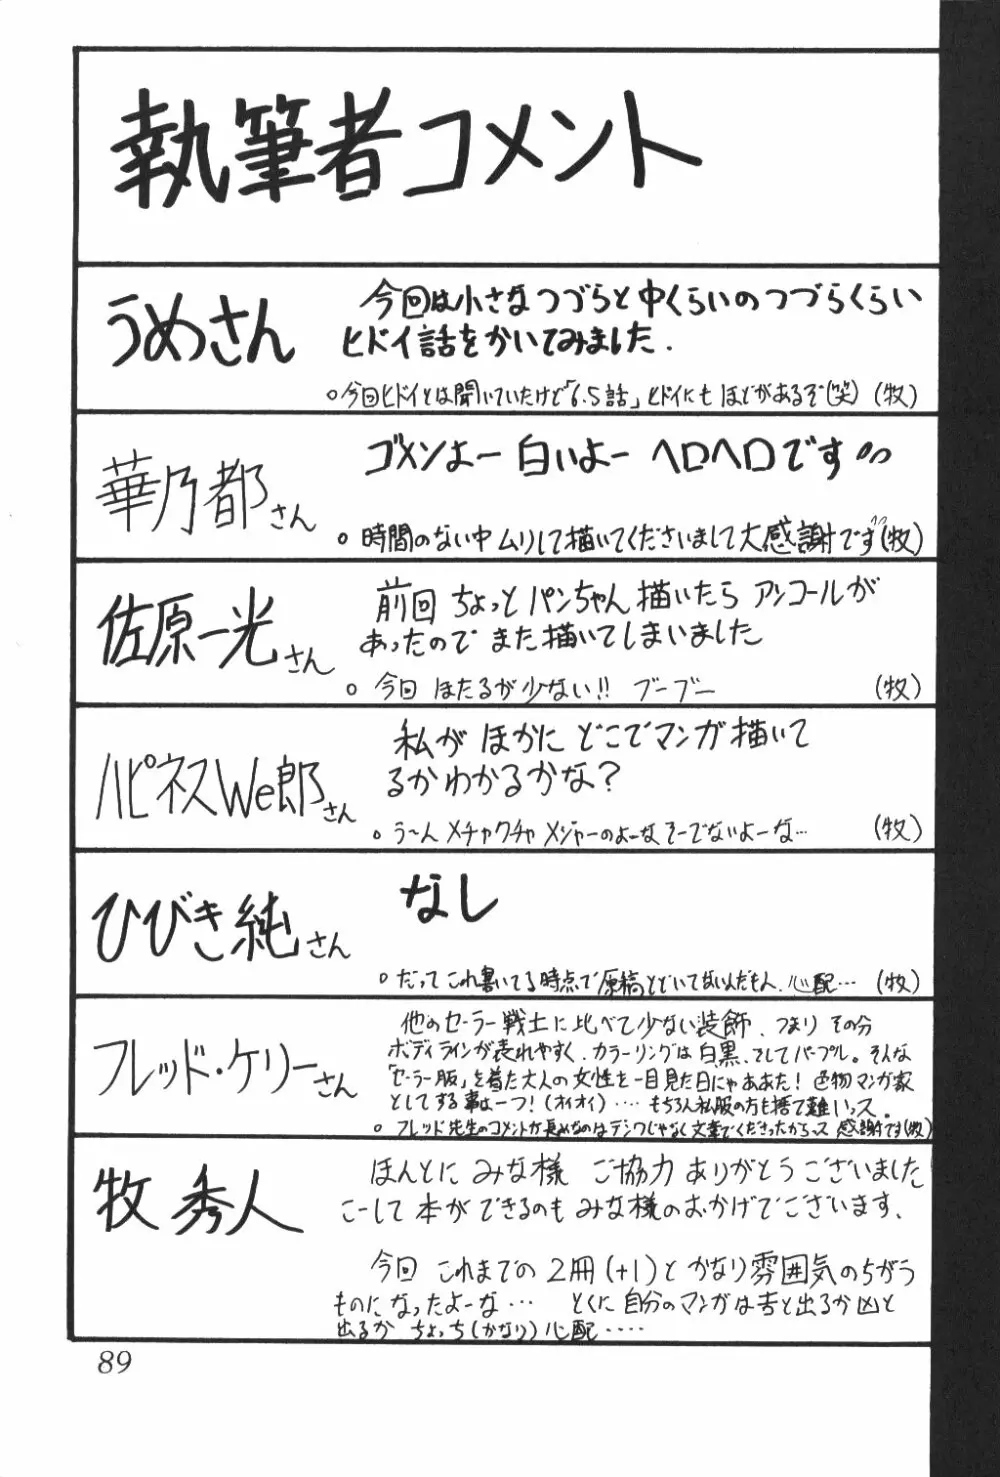 執筆者コメント
うめさん
今回は小さなつづらと中くらいのつづらくらい
ヒドイ話をかいてみました.
○今回ヒドイとは聞いていたけど「6.5話」ヒドイにもほどがあるぞ(笑) (牧)
華乃都さん
ゴメンよー 白いよー ヘロヘロです
○時間のない中ムリして描いてくださいまして大感謝です (牧)
佐原一光さん
前回 ちょっと パンちゃん 描いたら アンコールが
あったので また 描いてしまいました
○今回 ほたるが少ない!! ブーブー (牧)
ハピネスWe郎さん
私が ほかに どこでマンガ描いて
るか わかるかな?
○う〜ん メチャクチャ メジャーのよーな そーでないよーな… (牧)
ひびき純さん
なし
○だって これ書いてる時点で 原稿とどいてないんだもん. 心配… (牧)
フレッド・ケリーさん
他のセーラー戦士に比べて少ない装飾、つまり その分
ボディラインが表れやすく、カラーリングは白黒、そしてパープル。そんな
「セーラー服」を着た大人の女性を一目見た日にゃああた! 色物マンガ家
としてする事は一つ! (オイオイ) …. もちろん私服の方も捨て難いッス.
○フレッド先生のコメントが長めなのはデンワじゃなく文章でくださったからッス 感謝です(牧)
牧 秀人
ほんとに みな様 ご協力 ありがとうございました
こーして 本ができるのも みな様のおかげでございます.
今回 これまでの 2冊(+1)と かなり雰囲気のちがう
ものになったよーな… とくに 自分のマンガは吉と出るか凶と
出るか ちょっち(かなり)心配‥‥
89